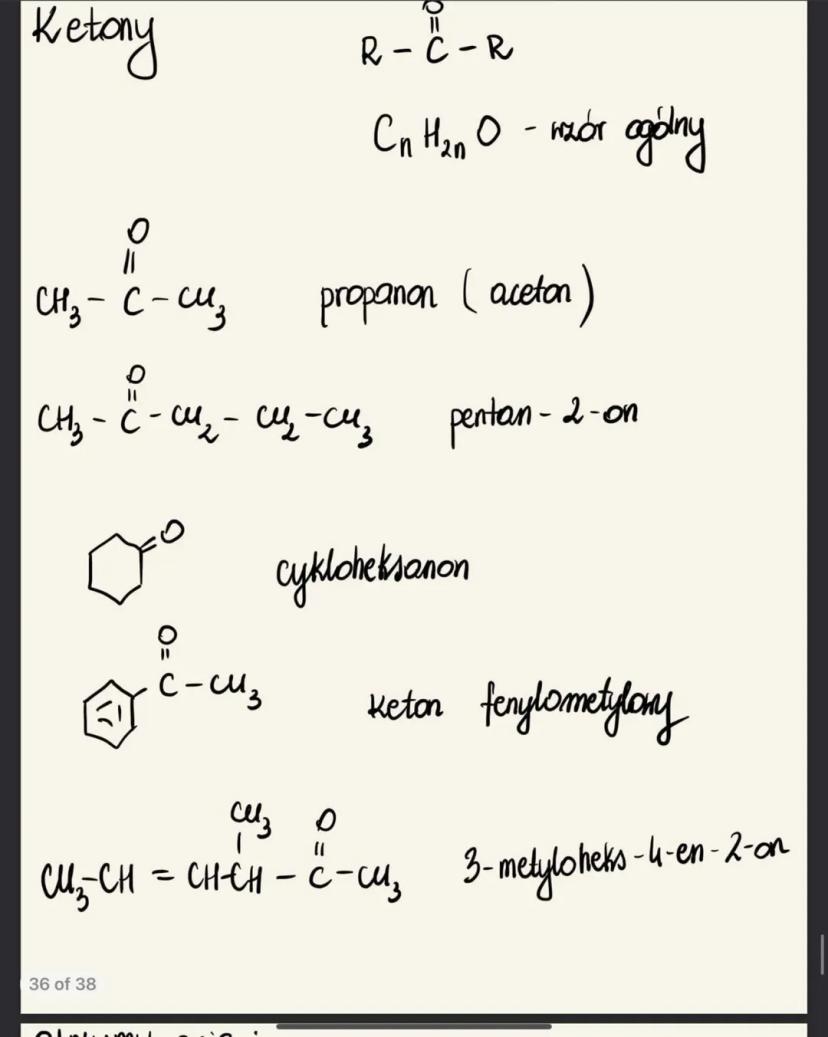 Ketony
O
||
R - C - R
CnH2nO - wzór ogólny
O
||
CH3 - C - CH3 propanon (aceton)
O
||
CH3 - C - CH2 - CH2 - CH3 pentan-2-on
O
cykloheksanon
O
||
C - CH3
keton fenylometylowy
CH3 O
| ||
CH3-CH = CH-CH - C - CH3 3-metyloheks-4-en-2-on
36 of 38